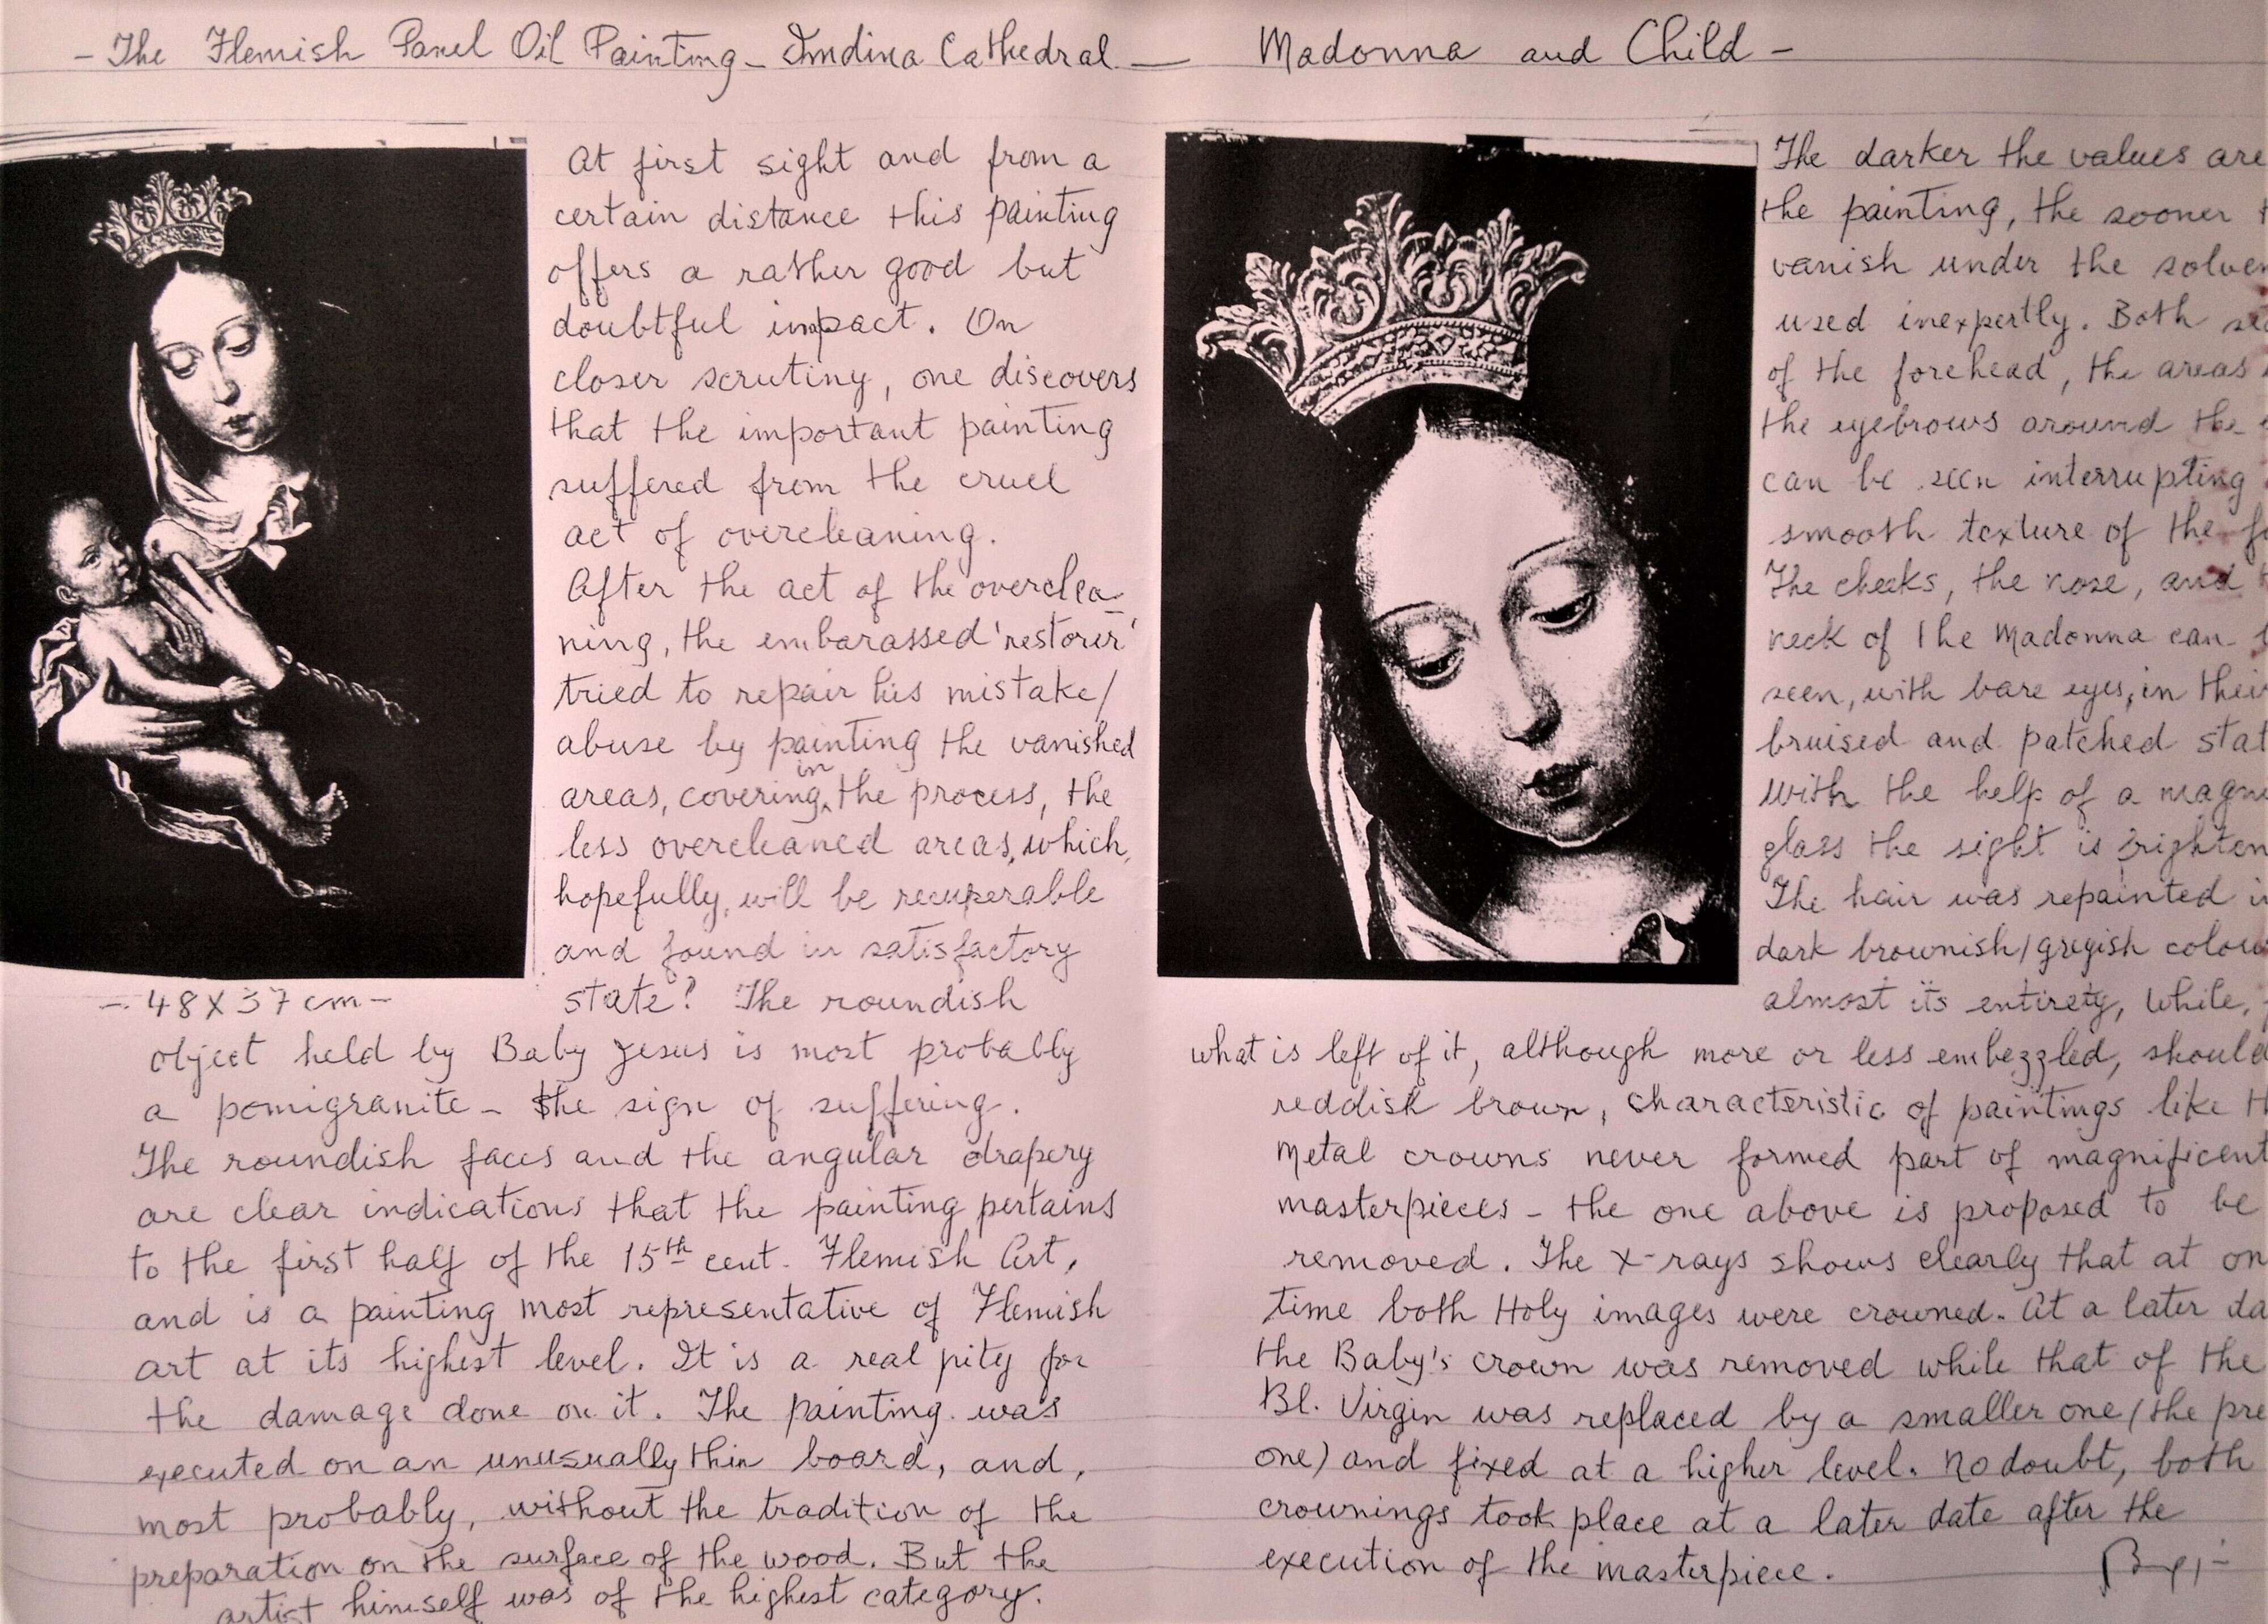 - The Flemish Panel Oil Painting - Imdina Cathedral — Madonna and Child -
At first sight and from a
certain distance this painting
offers a rather good but
doubtful impact. On
closer scrutiny, one discovers
that the important painting
suffered from the cruel
act of overcleaning.
After the act of the overclea-
ning, the embarassed 'restorer'
tried to repair his mistake/
abuse by painting the vanished
areas, covering in the process, the
less overcleaned areas, which,
hopefully, will be recuperable
and found in satisfactory
state? The roundish
- 48 X 37 cm -
object held by Baby Jesus is most probably
a pomigranite - the sign of suffering.
The roundish faces and the angular drapery
are clear indications that the painting pertains
to the first half of the 15th cent. Flemish Art,
and is a painting most representative of Flemish
art at its highest level. It is a real pity for
the damage done on it. The painting was
executed on an unusually thin board, and,
most probably, without the tradition of the
preparation on the surface of the wood. But the
artist himself was of the highest category.
The darker the values are
the painting, the sooner
vanish under the
used inexpertly. Both
of the forehead, the areas
the eyebrows around the
can be seen interrupting
smooth texture of the
The cheeks, the nose, and
neck of the Madonna can
seen, with bare eyes, in
bruised and patched
with the help of a
glass the sight is
The hair was repainted
dark brownish/greyish
almost its entirety, while,
what is left of it, although more or less embezzled, should
reddish brown, characteristic of paintings like
Metal crowns never formed part of magnificent
masterpieces - the one above is proposed to be
removed. The X-rays shows clearly that at
time both Holy images were crowned. At a later
the Baby's crown was removed while that of the
Bl. Virgin was replaced by a smaller one (the
one) and fixed at a higher level. No doubt, both
crownings took place at a later date after the
execution of the masterpiece.